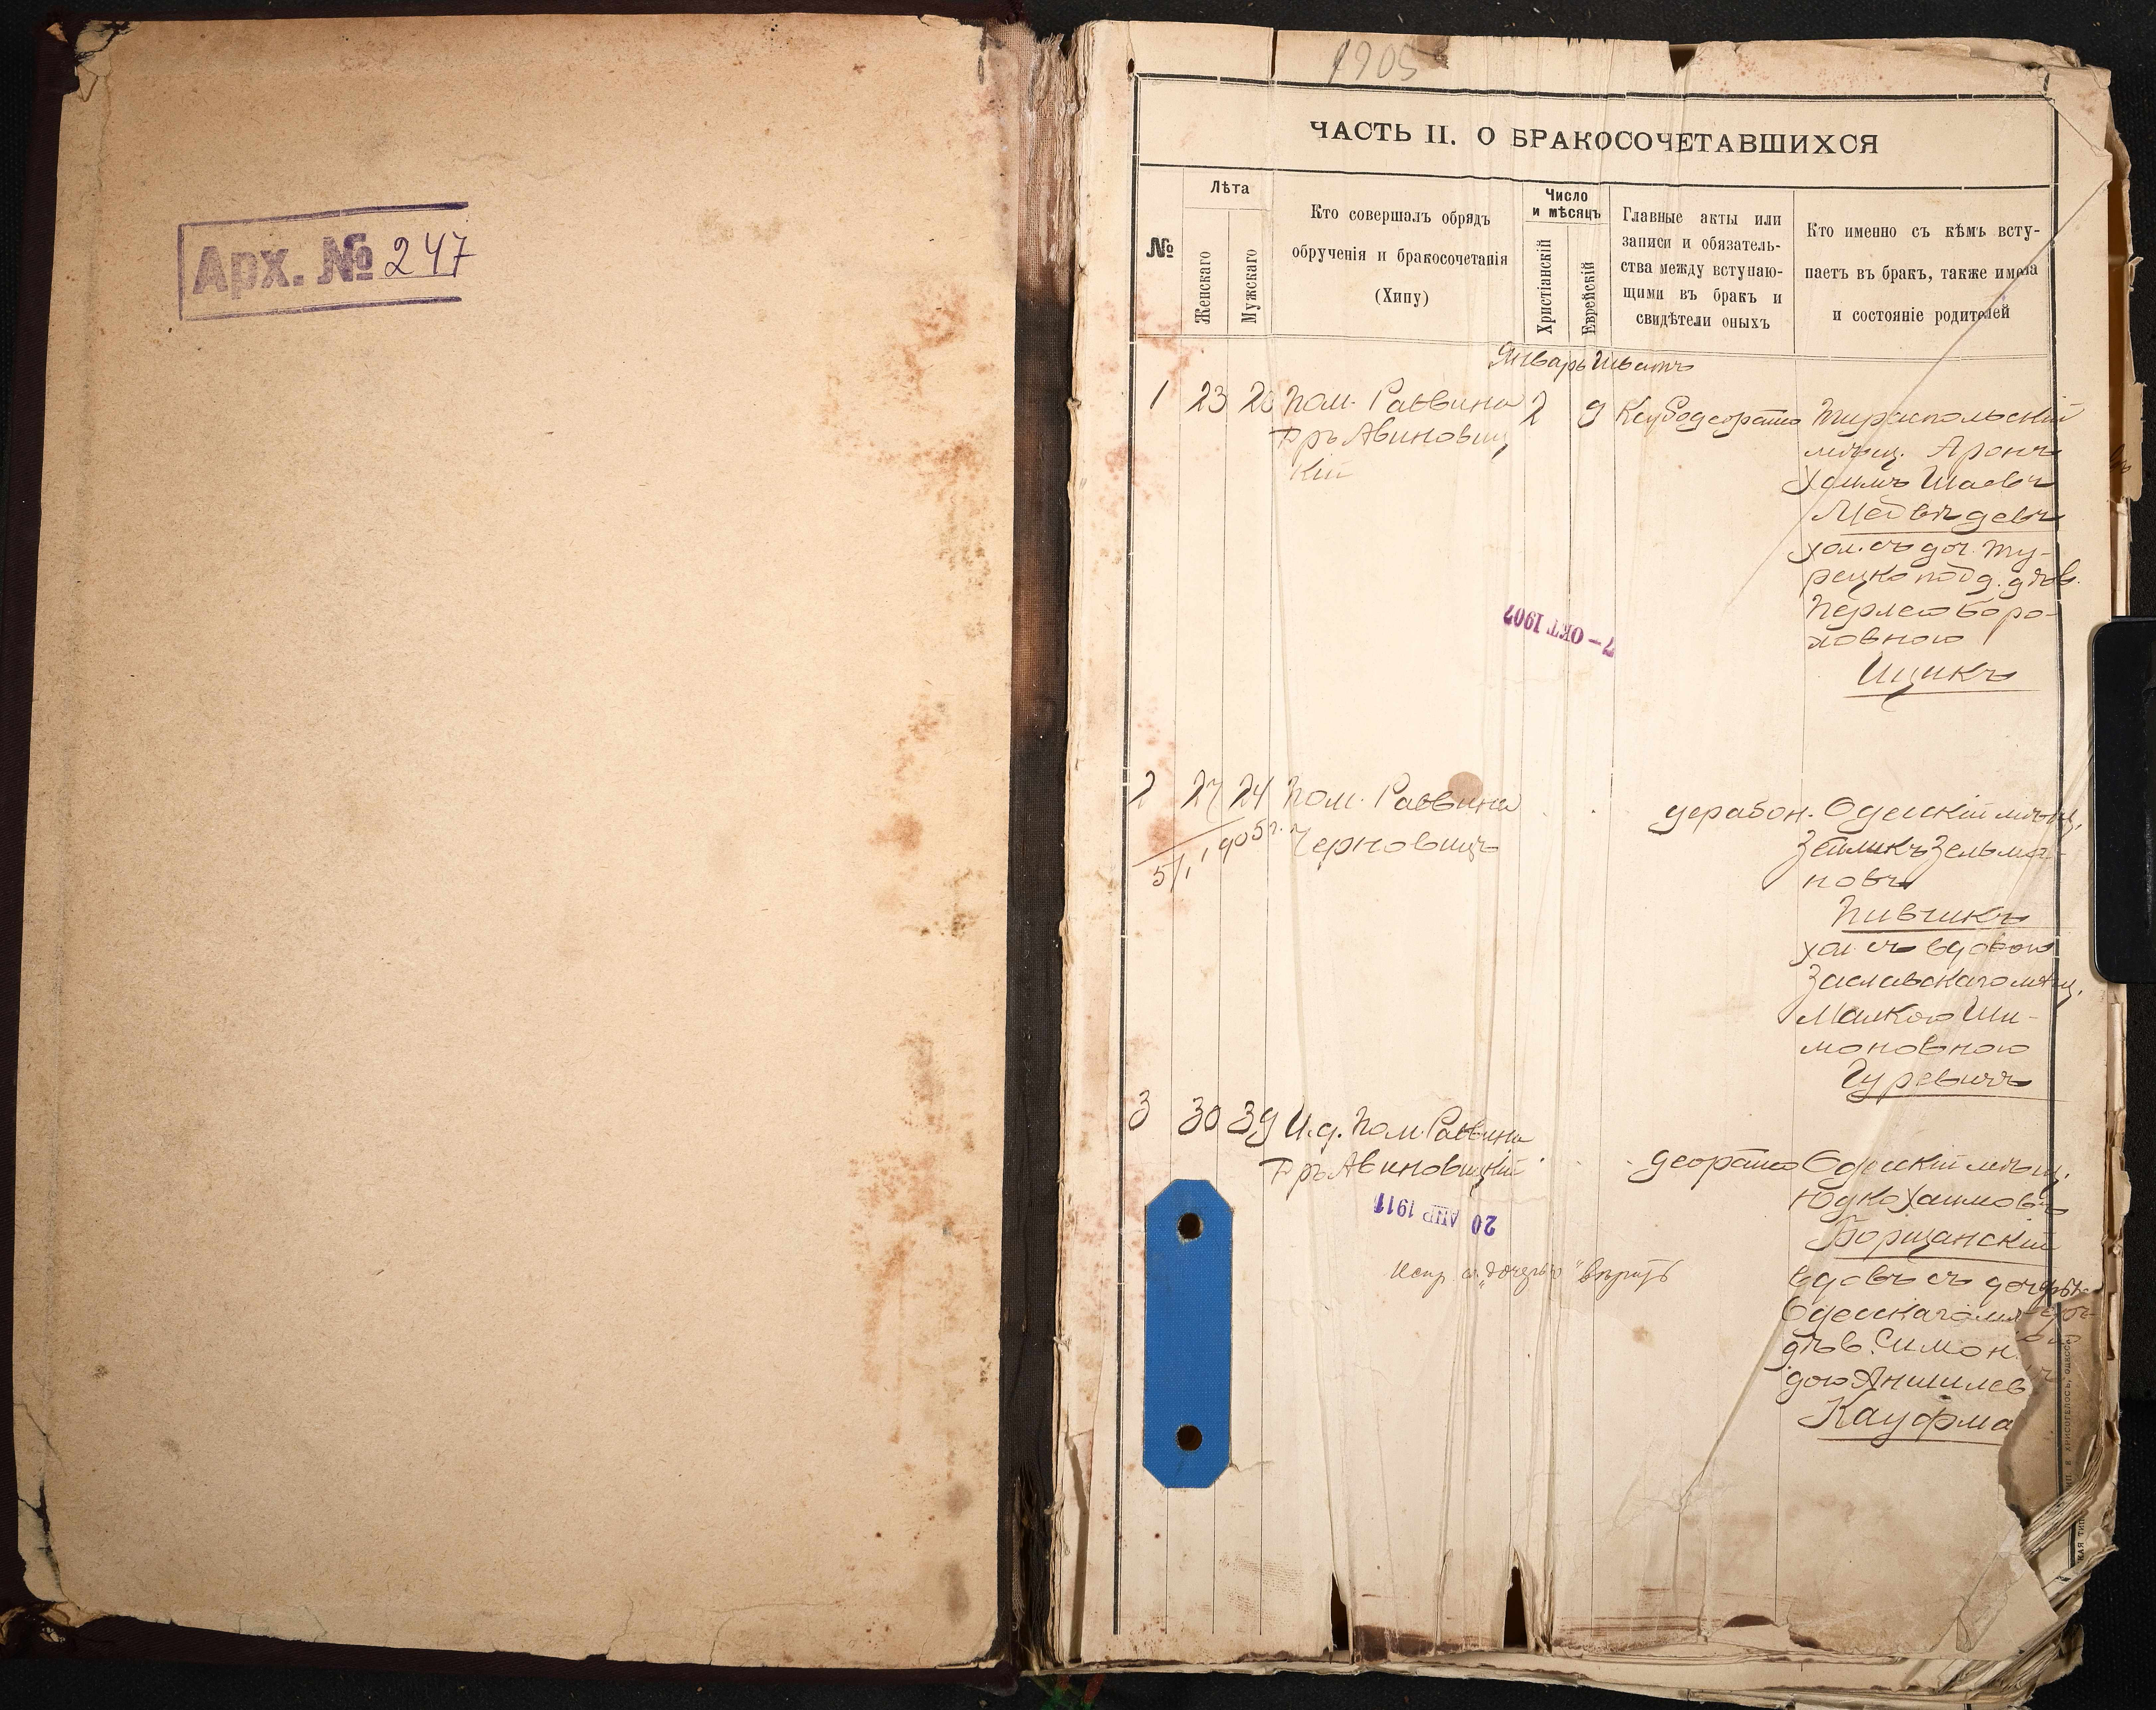 Арх. № 247
1905
ЧАСТЬ II. О БРАКОСОЧЕТАВШИХСЯ
№
Лѣта
Женскаго
Мужскаго
Кто совершалъ обрядъ
обрученія и бракосочетанія
(Хипу)
Число
и мѣсяцъ
Христіанскій
Еврейскій
Главные акты или
записи и обязатель-
ства между вступаю-
щими въ бракъ и
свидѣтели оныхъ
Кто именно съ кѣмъ всту-
паетъ въ бракъ, также имена
и состояніе родителей
Январь Шватъ
1 23 20 Пом. Раввина 2 9
Гръ Авиновиц
кій
Тираспольскій
мѣщ. Аронъ
Хаимъ Шаевъ
Медвѣдевъ
хол. съ доч. Ту-
рецко подд. дѣв.
Перлею Боро-
ховною
Ицикъ
7-ОКТ 1907
2 27 24 Пом. Раввина
Черновицъ
5/I 1905 г.
дерабон. Одесскій мѣщ.
Зейликъ Зельма-
новъ
Пивчикъ
хол. съ вдовою
Заславскаго мѣщ.
Малкою Ши-
моновною
Гуревичъ
3 30 39 И.д. Пом. Раввина
Гръ Авиновицкій
деорайто Одесскій мѣщ.
Юдко Хаимовъ
Борщанскій
вдовъ съ
Одесскаго
дѣв. Симон
дою Аншилев
Кауфма
20 АПР 1911
Испр. "дочерью" вѣрить